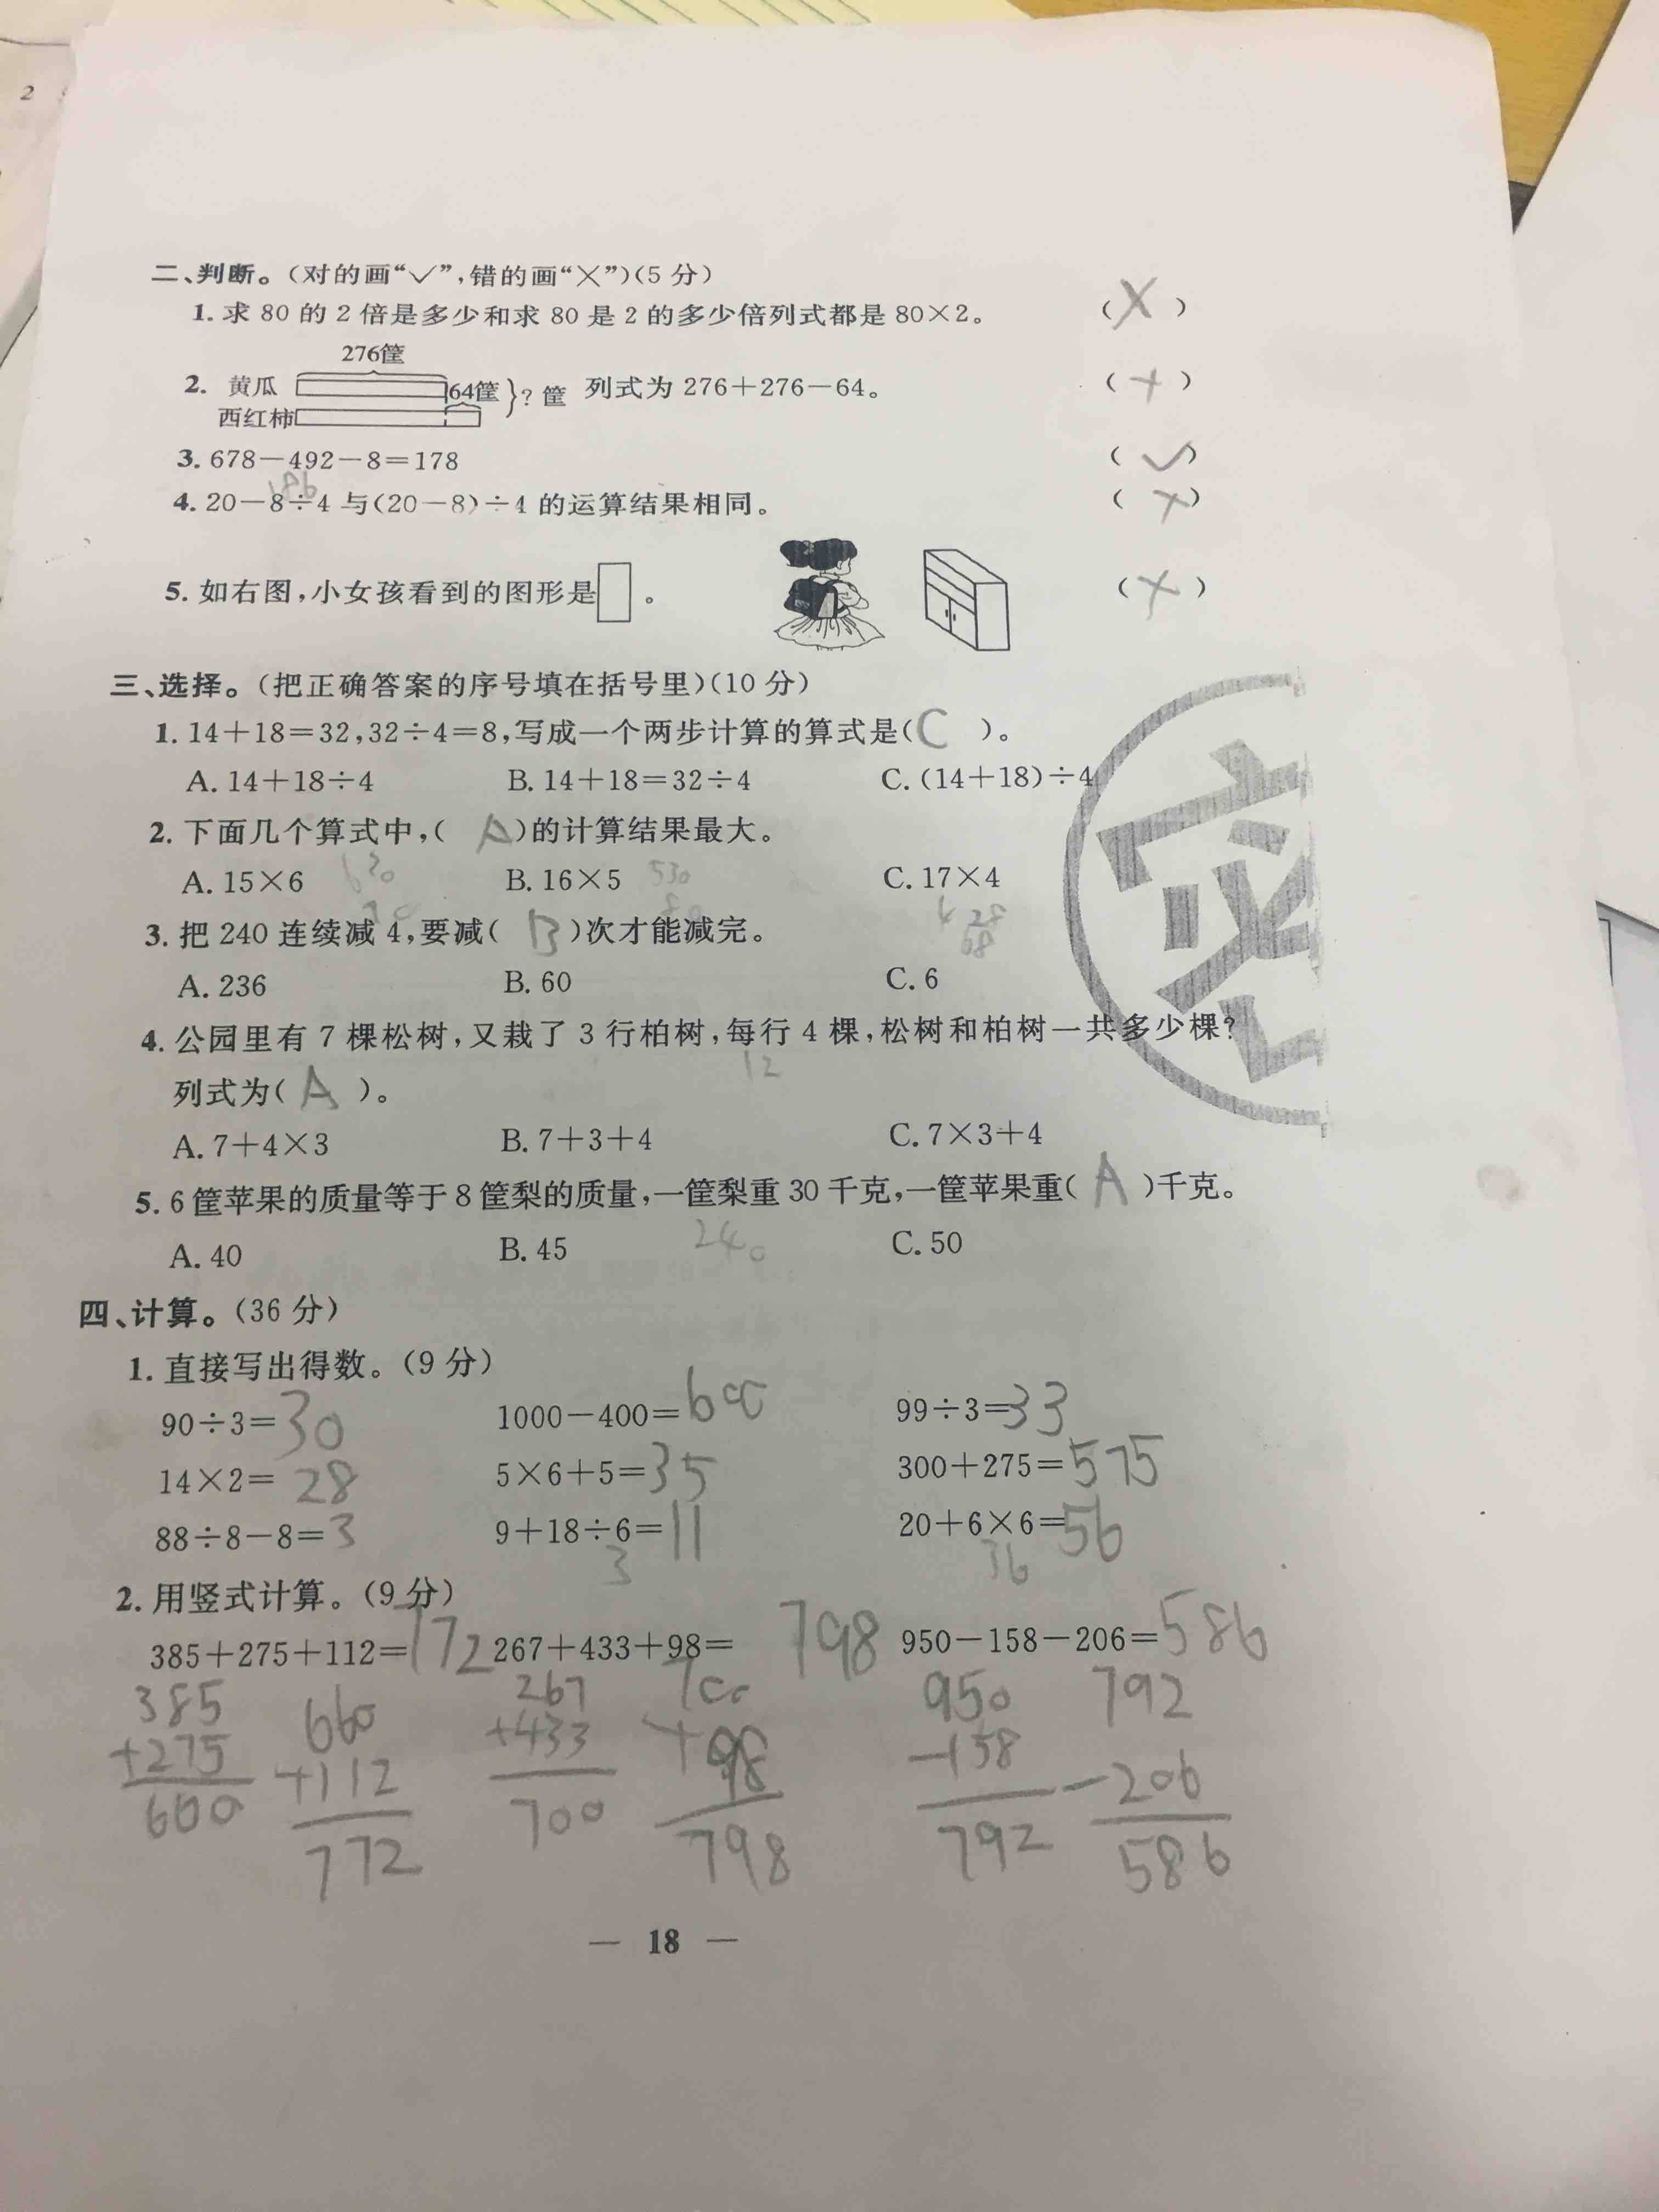 2
二、判断。(对的画“✓”,错的画“×”)(5 分)
1. 求 80 的 2 倍是多少和求 80 是 2 的多少倍列式都是 80×2。 (×)
276筐
2. 黄瓜 64筐 ?筐 列式为 276+276-64。 (×)
西红柿
3. 678-492-8=178 (✓)
186
4. 20-8÷4 与(20-8)÷4 的运算结果相同。 (×)
5. 如右图,小女孩看到的图形是 。 (×)
三、选择。(把正确答案的序号填在括号里)(10 分)
1. 14+18=32,32÷4=8,写成一个两步计算的算式是( C )。
A. 14+18÷4 B. 14+18=32÷4 C. (14+18)÷4
2. 下面几个算式中,( A )的计算结果最大。
A. 15×6 630 B. 16×5 530 C. 17×4
90 80 4 28
68
3. 把 240 连续减 4,要减( B )次才能减完。
A. 236 B. 60 C. 6
4. 公园里有 7 棵松树,又栽了 3 行柏树,每行 4 棵,松树和柏树一共多少棵?
12
列式为( A )。
A. 7+4×3 B. 7+3+4 C. 7×3+4
5. 6筐苹果的质量等于8筐梨的质量,一筐梨重30千克,一筐苹果重( A )千克。
240
A. 40 B. 45 C. 50
四、计算。(36 分)
1. 直接写出得数。(9 分)
90÷3=30 1000-400=600 99÷3=33
14×2=28 5×6+5=35 300+275=575
88÷8-8=3 9+18÷6=11 20+6×6=56
3 36
2. 用竖式计算。(9 分)
385+275+112=172 267+433+98= 798 950-158-206=586
385 660 267 700 950 792
+275 +112 +433 +98 -158 -206
660 772 700 798 792 586
— 18 —